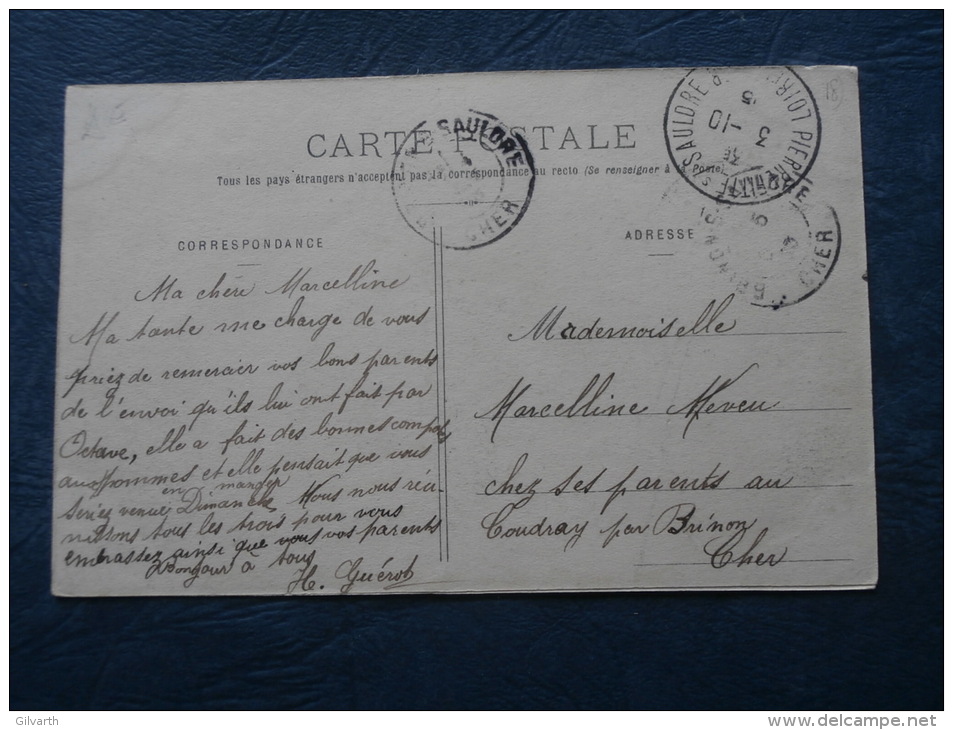 CARTE POSTALE
Tous les pays étrangers n'acceptent pas la correspondance au recto (Se renseigner à la Poste)
CORRESPONDANCE
Ma chère Marcelline
Ma tante me charge de vous
priez de remercier vos bons parents
de l'envoi qu'ils lui ont fait par
Octave, elle a fait des bonnes compotes
aux pommes et elle pensait que vous
seriez venue en manger Dimanche Nous nous réu-
nissons tous les trois pour vous
embrassez ainsi que vous vos parents
Bonjour à tous
H. Guérot
ADRESSE
Mademoiselle
Marcelline Meveu
chez ses parents au
Coudray par Brinon
Cher
SAULDRE
CHER
PIERREFITTE S/ SAULDRE
3 -10
15
CHER
81
Gilvarth
delcampe.net